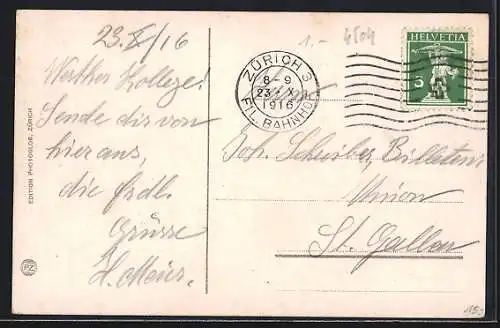 23.X/16
Werther Kollege!
Sende dir von
hier aus,
die frdl.
Grüsse
H. Meier.
EDITION PHOTOGLOB, ZÜRICH
PZ
1.- 4504
ZÜRICH 3
8-9
23·X
1916
FIL. BAHNHOF
HELVETIA
5
Joh. Schreiber, Billeteur
Union
St. Gallen